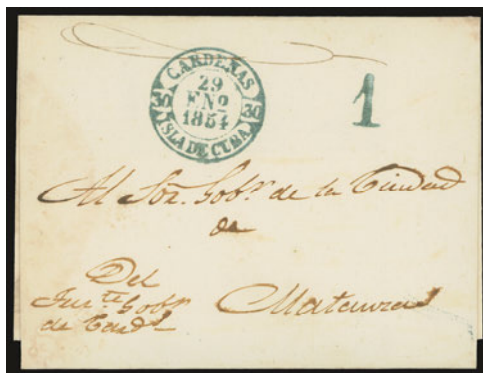 CARDENAS
30 29 30
ENº
1854
ISLA DE CUBA
1
Al Sor. Gobr. de la Ciudad
de
Matanzas
Del
Tente Gobr
de Cards